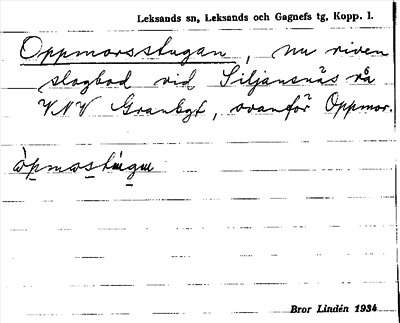 Leksands sn, Leksands och Gagnefs tg, Kopp. l.
Oppmorsstugan, nu riven
slogbod vid Siljansnäs rå
VNV Granbgt, ovanför Oppmor.
Bror Lindén 1934